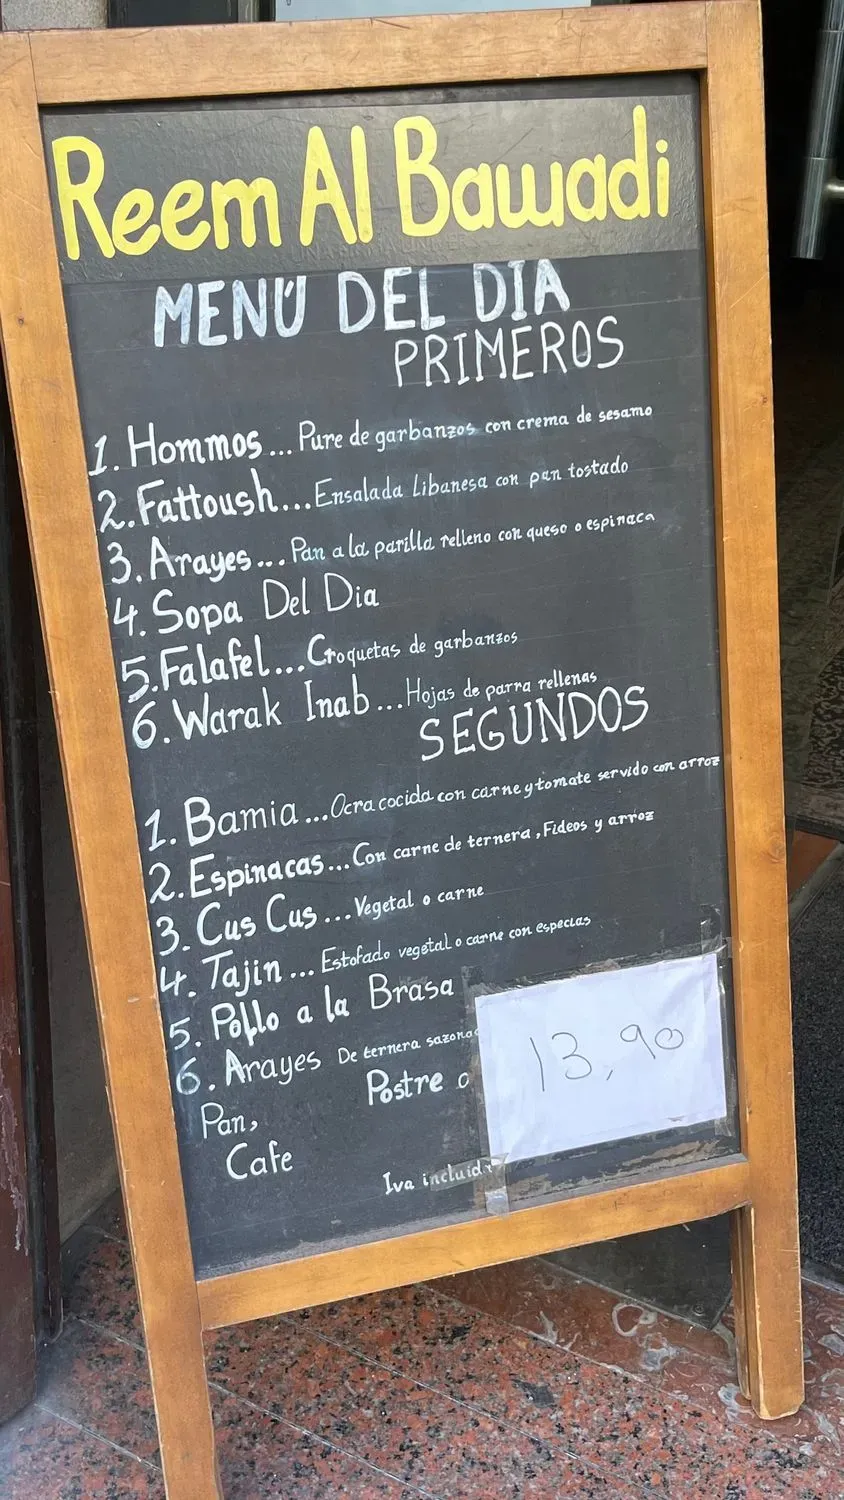 Reem Al Bawadi
MENÚ DEL DIA
PRIMEROS
1. Hommos... Pure de garbanzos con crema de sesamo
2. Fattoush... Ensalada Libanesa con pan tostado
3. Arayes... Pan a la parilla relleno con queso o espinaca
4. Sopa Del Dia
5. Falafel... Croquetas de garbanzos
6. Warak Inab... Hojas de parra rellenas
SEGUNDOS
1. Bamia... Ocra cocida con carne y tomate servido con arroz
2. Espinacas... Con carne de ternera, Fideos y arroz
3. Cus Cus... Vegetal o carne
4. Tajin... Estofado vegetal o carne con especias
5. Pollo a la Brasa
6. Arayes De ternera
13,90
Postre o
Pan,
Cafe
Iva incluid